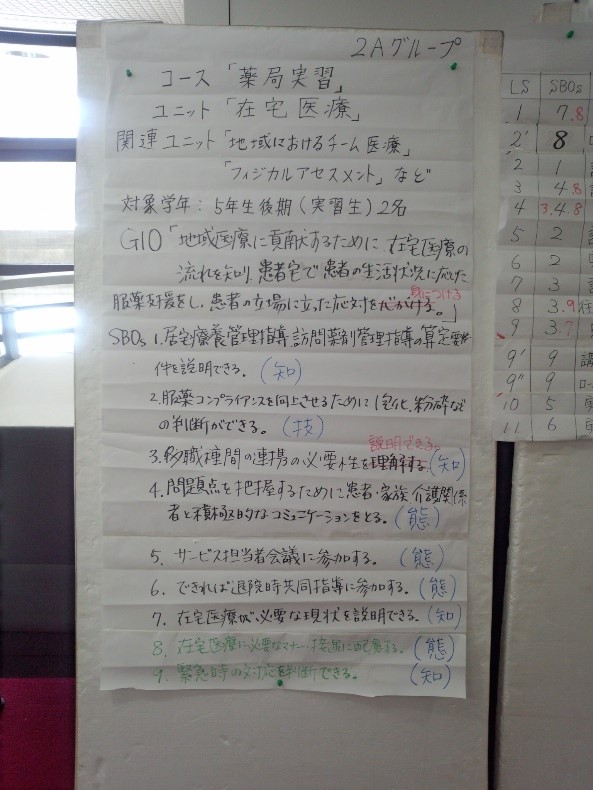 2Aグループ
コース「薬局実習」
ユニット「在宅医療」
関連ユニット「地域におけるチーム医療」
「フィジカルアセスメント」など
対象学年：5年生後期（実習生）2名
GIO「地域医療に貢献するために、在宅医療の
流れを知り、患者宅で患者の生活状況に応じた
身につける
服薬支援をし、患者の立場に立った応対を心がける。」
SBOs 1.居宅療養管理指導、訪問薬剤管理指導の算定要
件を説明できる。（知）
2.服薬コンプライアンスを向上させるために1包化、粉砕など
の判断ができる。（技）
説明できる。
3.多職種間の連携の必要性を理解する。（知）
4.問題点を把握するために患者・家族・介護関係
者と積極的なコミュニケーションをとる。（態）
5. サービス担当者会議に参加する。（態）
6. できれば退院時共同指導に参加する。（態）
7. 在宅医療が必要な現状を説明できる。（知）
8. 在宅医療に必要なマナー、接遇に配慮する。（態）
9. 緊急時の対応を判断できる。（知）
LS SBOs
1 7.8
2' 8
2 1
3 4.8
4 3.4.8
5 2
6 2
7 3
8 3.9
9 3.7
9' 9
9" 9
10 5
11 6